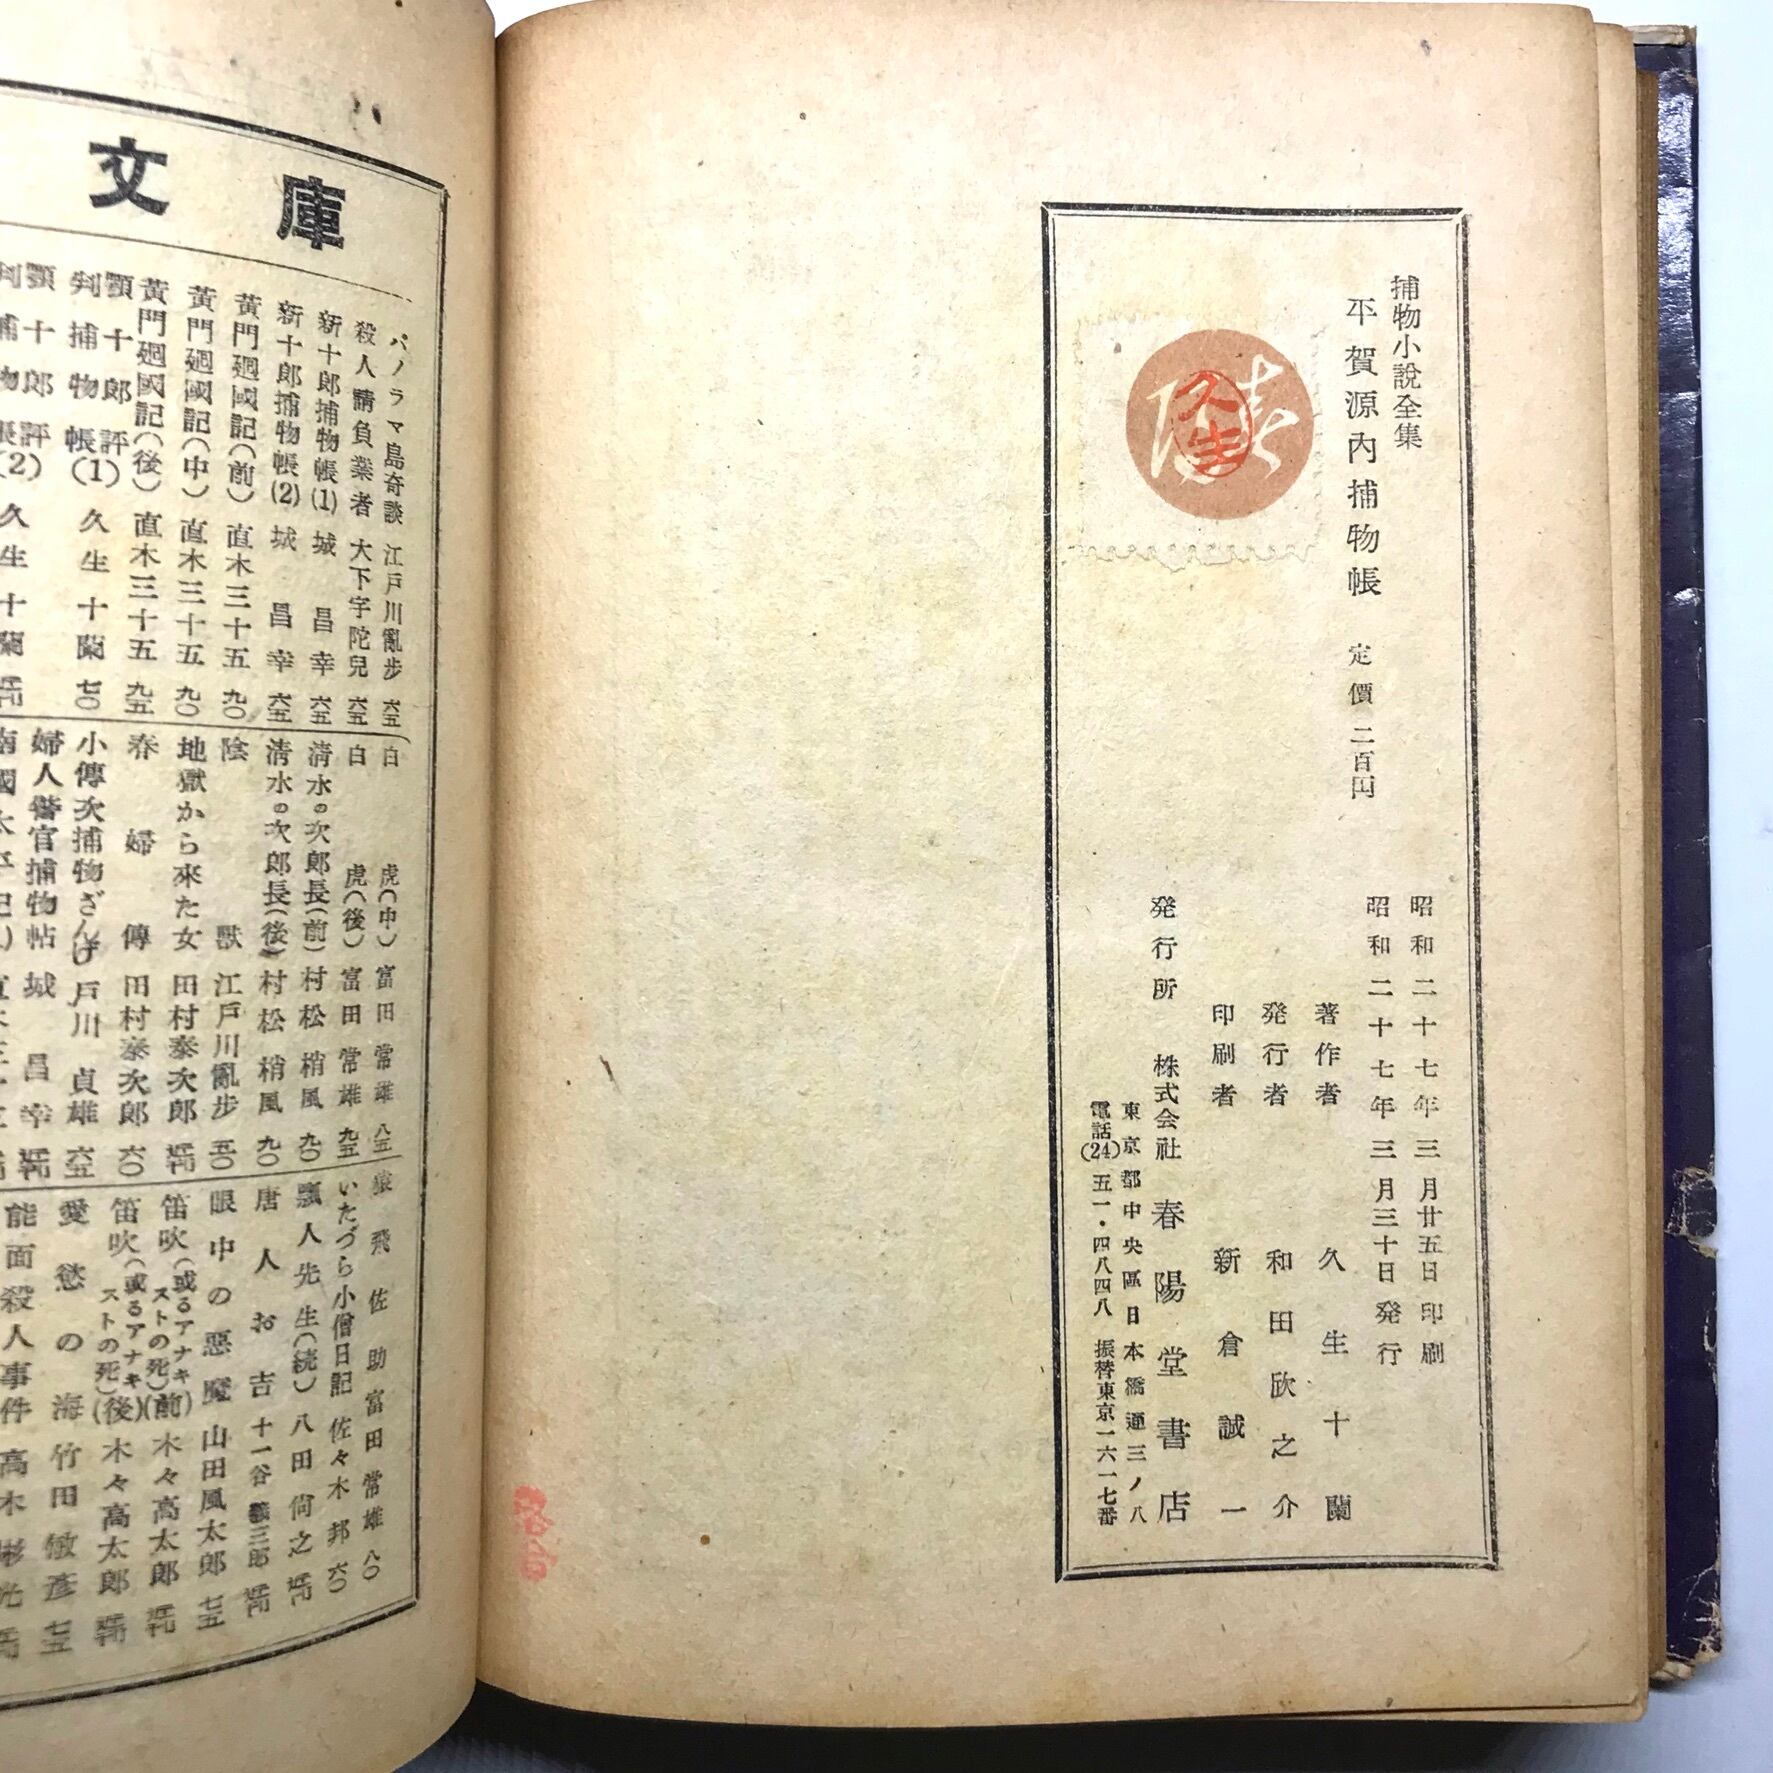 捕物小說全集
平賀源內捕物帳 定價 二百円
久生
昭和二十七年三月廿五日 印刷
昭和二十七年三月三十日 発行
著作者 久生十蘭
発行者 和田欣之介
印刷者 新倉誠一
発行所 株式会社 春陽堂書店
東京都中央區日本橋通三ノ八
電話(24)五一・四八四八 振替東京一六一七番
文庫
パノラマ島奇談 江戸川亂步 六五
殺人請負業者 大下宇陀兒 六五
新十郎捕物帳(1) 城昌幸 六五
新十郎捕物帳(2) 城昌幸 六五
黃門廻國記(前) 直木三十五 九〇
黃門廻國記(中) 直木三十五 九〇
黃門廻國記(後) 直木三十五 九五
顎十郎評判捕物帳(1) 久生十蘭 七〇
顎十郎評判捕物帳(2) 久生十蘭 近刊
白虎(中) 富田常雄 八五
白虎(後) 富田常雄 九五
清水の次郎長(前) 村松梢風 九〇
清水の次郎長(後) 村松梢風 九〇
陰獸 江戸川亂步 五〇
地獄から來た女 田村泰次郎 近刊
春婦傳 田村泰次郎 六〇
小傳次捕物ざんげ 戸川貞雄 六五
婦人警官捕物帖 城昌幸 近刊
猿飛佐助 富田常雄 八〇
いたづら小僧日記 佐々木邦 六〇
瓢人先生(続) 八田尙之 近刊
唐人お吉 十一谷義三郎 近刊
眼中の惡魔 山田風太郎 七五
笛吹(或るアナキストの死)(前) 木々高太郎 近刊
笛吹(或るアナキストの死)(後) 木々高太郎 近刊
愛慾の海 竹田敏彥 七五
能面殺人事件 高木彬光 近刊